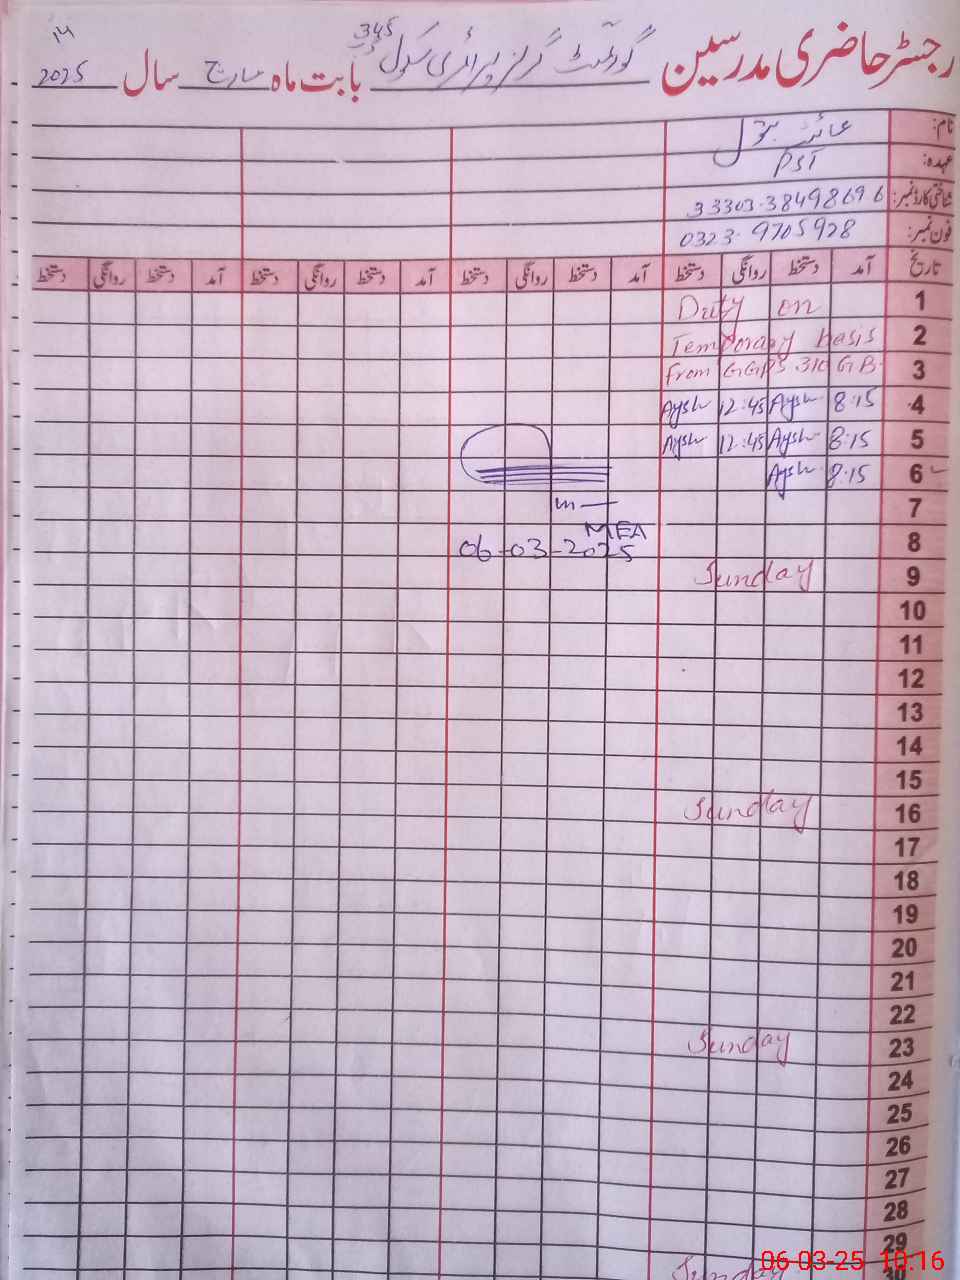 14
345
رجسٹر حاضری مدرسین گورنمنٹ گرلز پرائمری سکول بابت ماہ مارچ سال 2025
نام: عائشہ بتول
عہدہ: PST
شناختی کارڈ نمبر: 33303-3849869 6
فون نمبر: 0323-9705928
تاریخ آمد دستخط روانگی دستخط آمد دستخط روانگی دستخط آمد دستخط روانگی دستخط آمد دستخط روانگی دستخط
1 Duty on
2 Temporary basis
3 From GGPS 310 GB
4 8:15 Aysh 12:45 Aysh
5 8:15 Aysh 12:45 Aysh
6 8:15 Aysh
7
8 MEA
06-03-2025
9 Sunday
10
11
12
13
14
15
16 Sunday
17
18
19
20
21
22
23 Sunday
24
25
26
27
28
29
30 Sunday
06-03-25 10:16